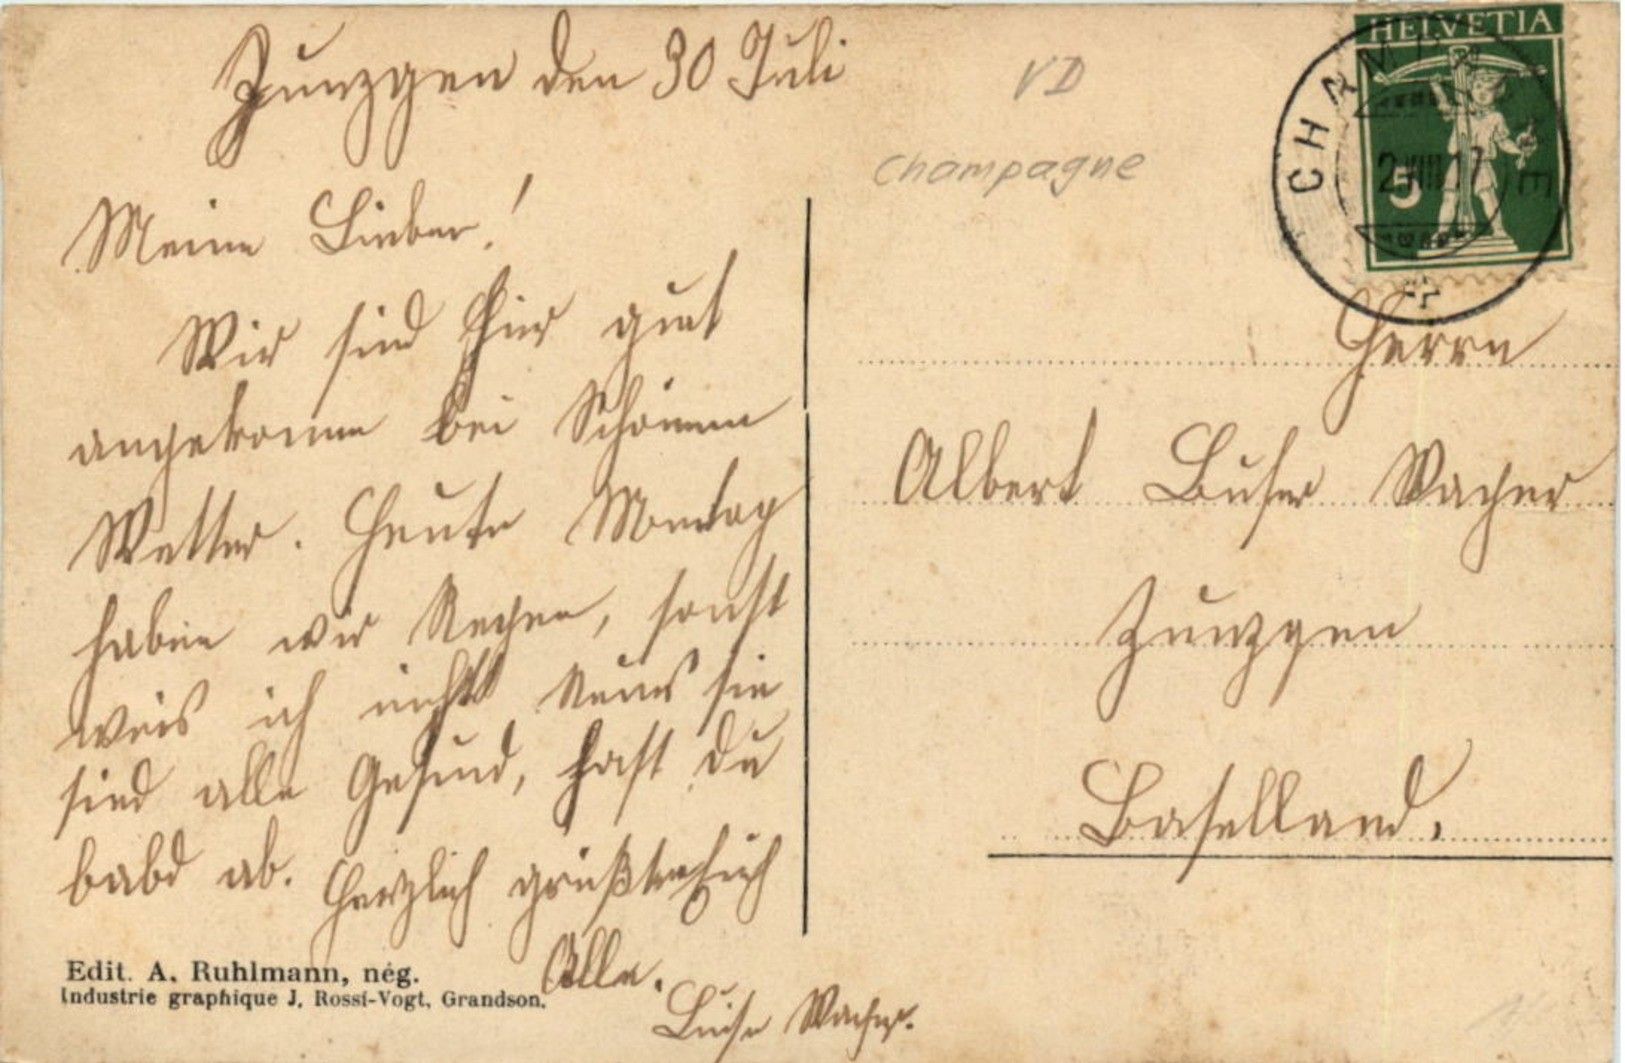 Zunzgen den 30 Juli
VD
Champagne
HELVETIA
5
2.VIII.17
Meine Lieber!
Wir sind hier gut
angekomm bei Schönem
Wetter. Heute Montag
haben wir Regen, sonst
weis ich nicht Neues sie
sind alle Gesund,
ab. Herzlich Euch
Alle.
Luise
Herrn
Albert Buser
Zunzgen
Baselland.
Edit. A. Ruhlmann, nég.
Industrie graphique J. Rossi-Vogt, Grandson.